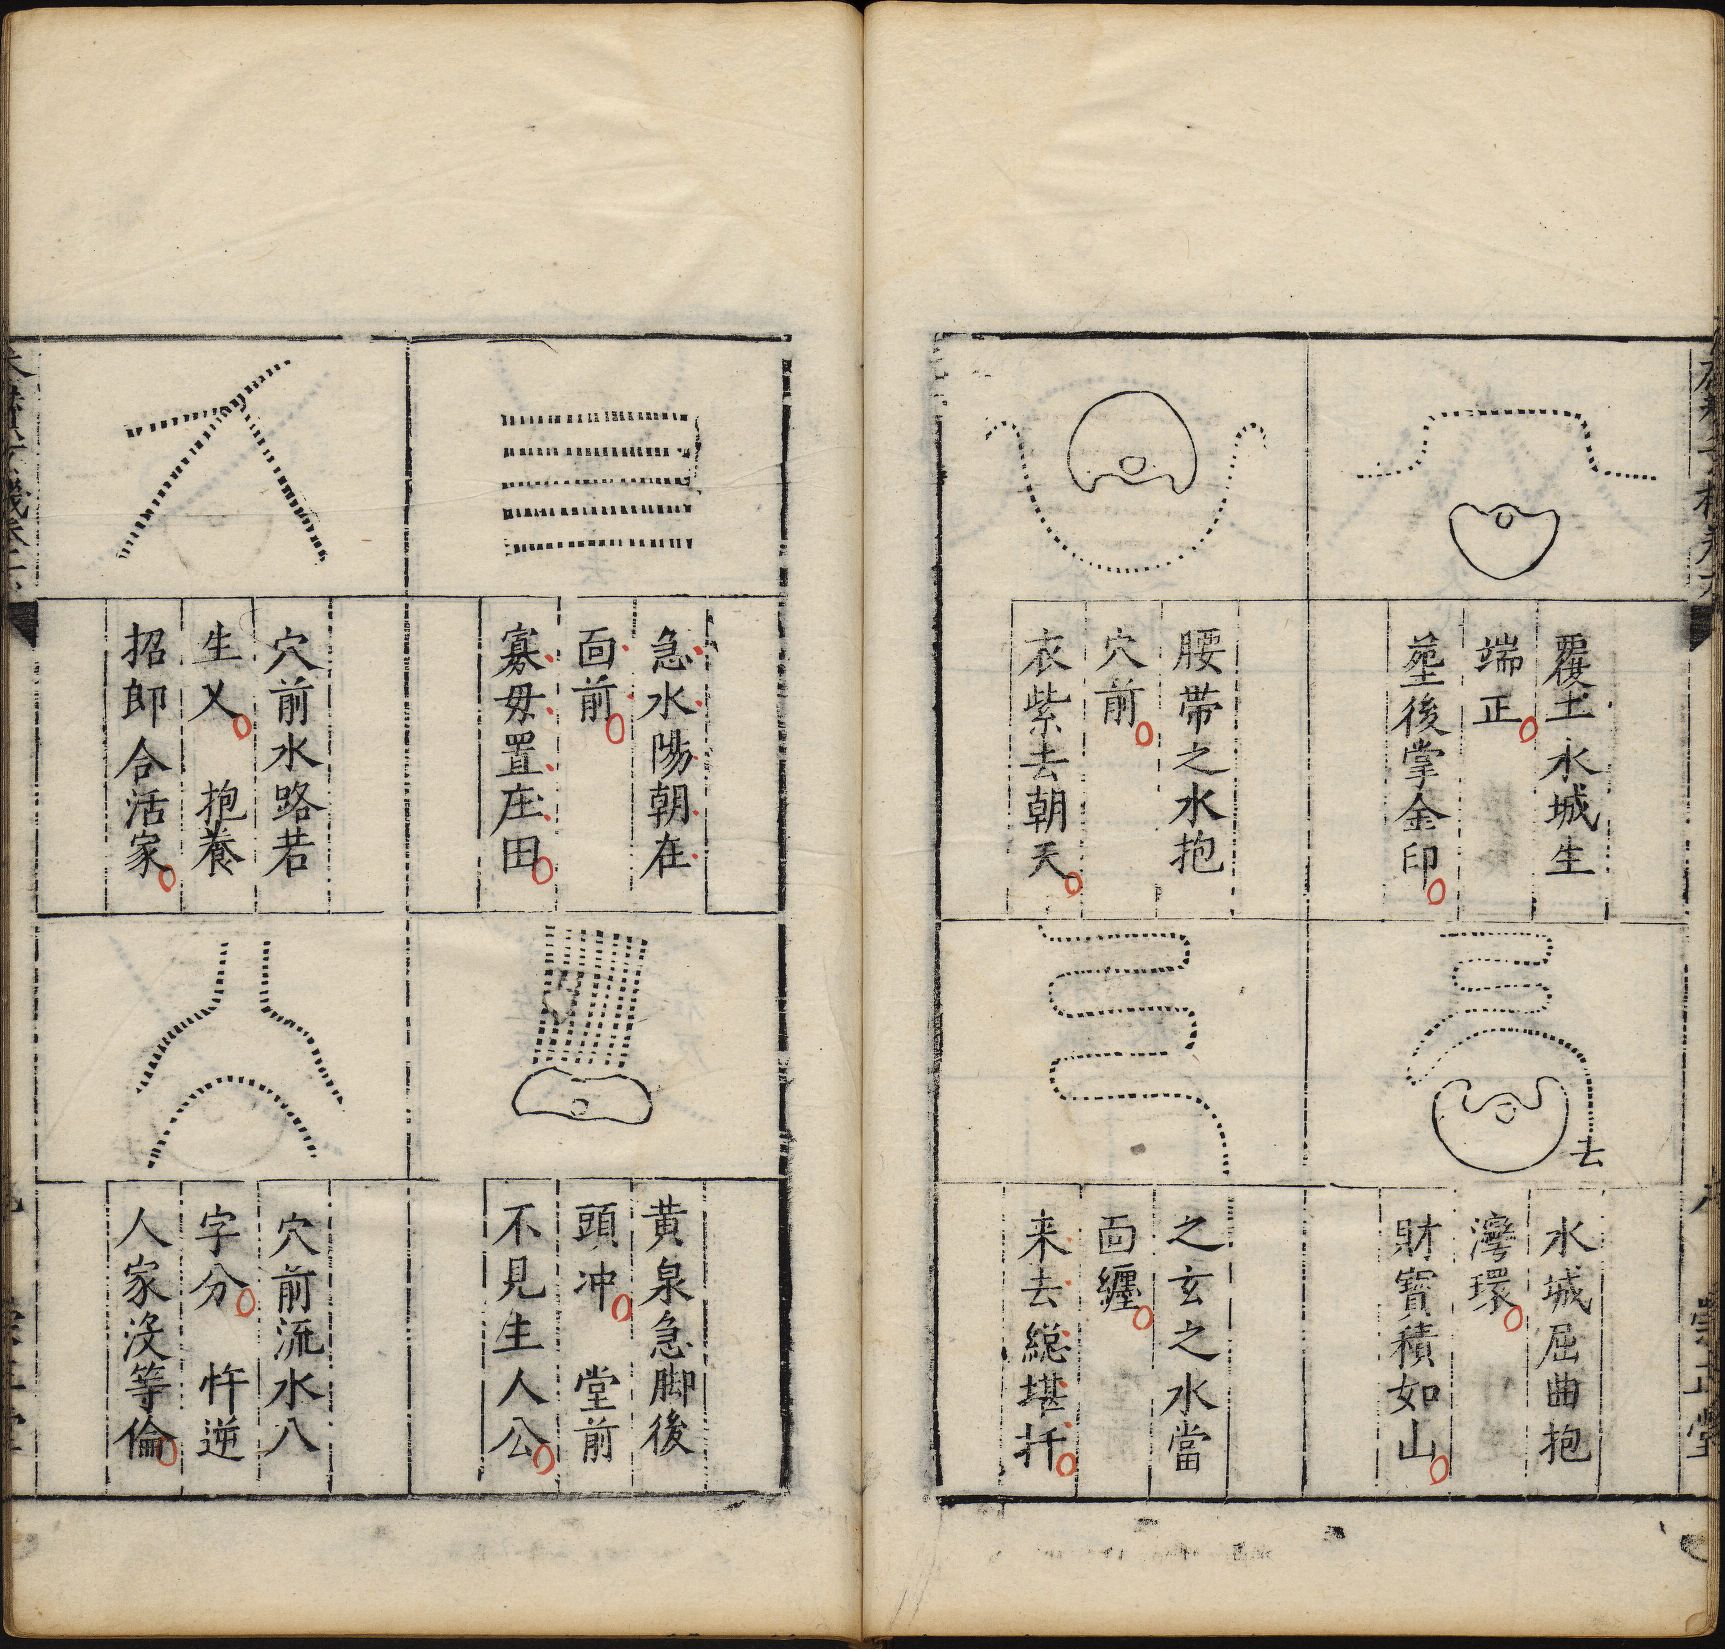 覆土水城生
端正
塋後掌金印
腰帶之水抱
穴前
衣紫去朝天
去
水城屈曲抱
灣環
財寳積如山
之玄之水當
面纏
来去緫堪扦
急水陽朝在
面前
寡毋置庄田
穴前水路若
生乂　抱養
招郎合活家
黄泉急脚後
頭冲　堂前
不見生人公
穴前流水八
字分　忤逆
人家没等倫